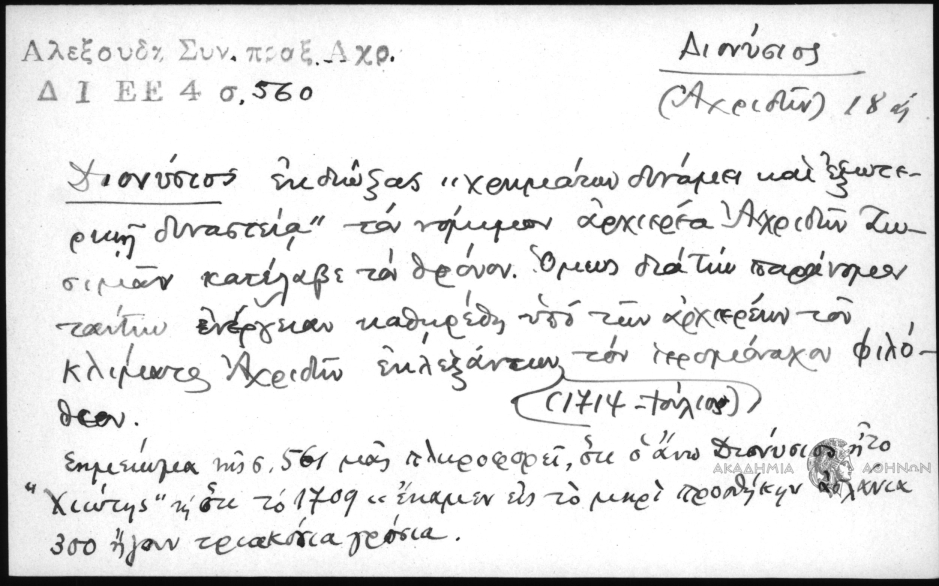 Αλεξουδη Συν. πραξ. Αχρ.
Δ Ι ΕΕ 4 σ. 560
Διονύσιος
(Ἀχριδῶν) 18
Διονύσιος ἐκδιώξας "χρημάτων δυνάμει καὶ ἐξωτε-
ρικῇ δυναστείᾳ" τὸν νόμιμον ἀρχιερέα Ἀχριδῶν Ζω-
σιμᾶν κατέλαβε τὸν θρόνον. Ὅμως διὰ τὴν παράνομον
ταύτην ἐνέργειαν καθῃρέθη ὑπὸ τῶν ἀρχιερέων τοῦ
κλίματος Ἀχριδῶν ἐκλεξάντων τὸν ἱερομόναχον Φιλό-
θεον.
(1714 - Ἰούλιος)
Σημείωμα τῆς σ. 561 μᾶς πληροφορεῖ, ὅτι ὁ ἄνω Διονύσιος ἦτο
"Χιώτης" κ' ὅτι τὸ 1709 "ἔκαμεν εἰς τὸ μιρὶ προσθήκην ἀσλάνια
300 ἤγουν τριακόσια γρόσια.
ΑΚΑΔΗΜΙΑ ΑΘΗΝΩΝ